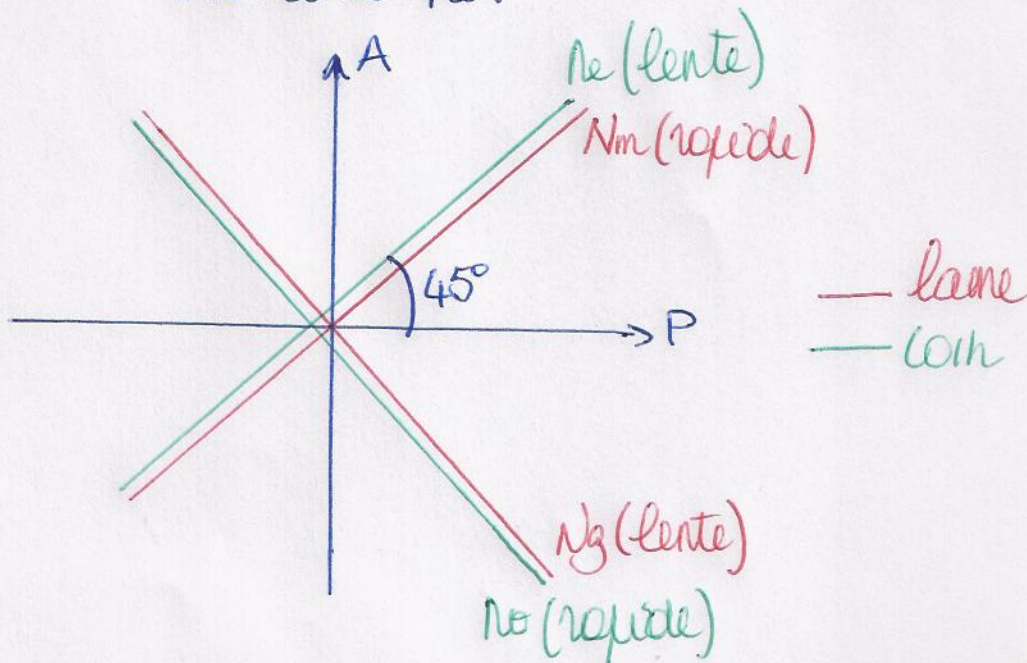 A
ne (lente)
Nm (rapide)
45°
P
lame
coin
Ng (lente)
no (rapide)